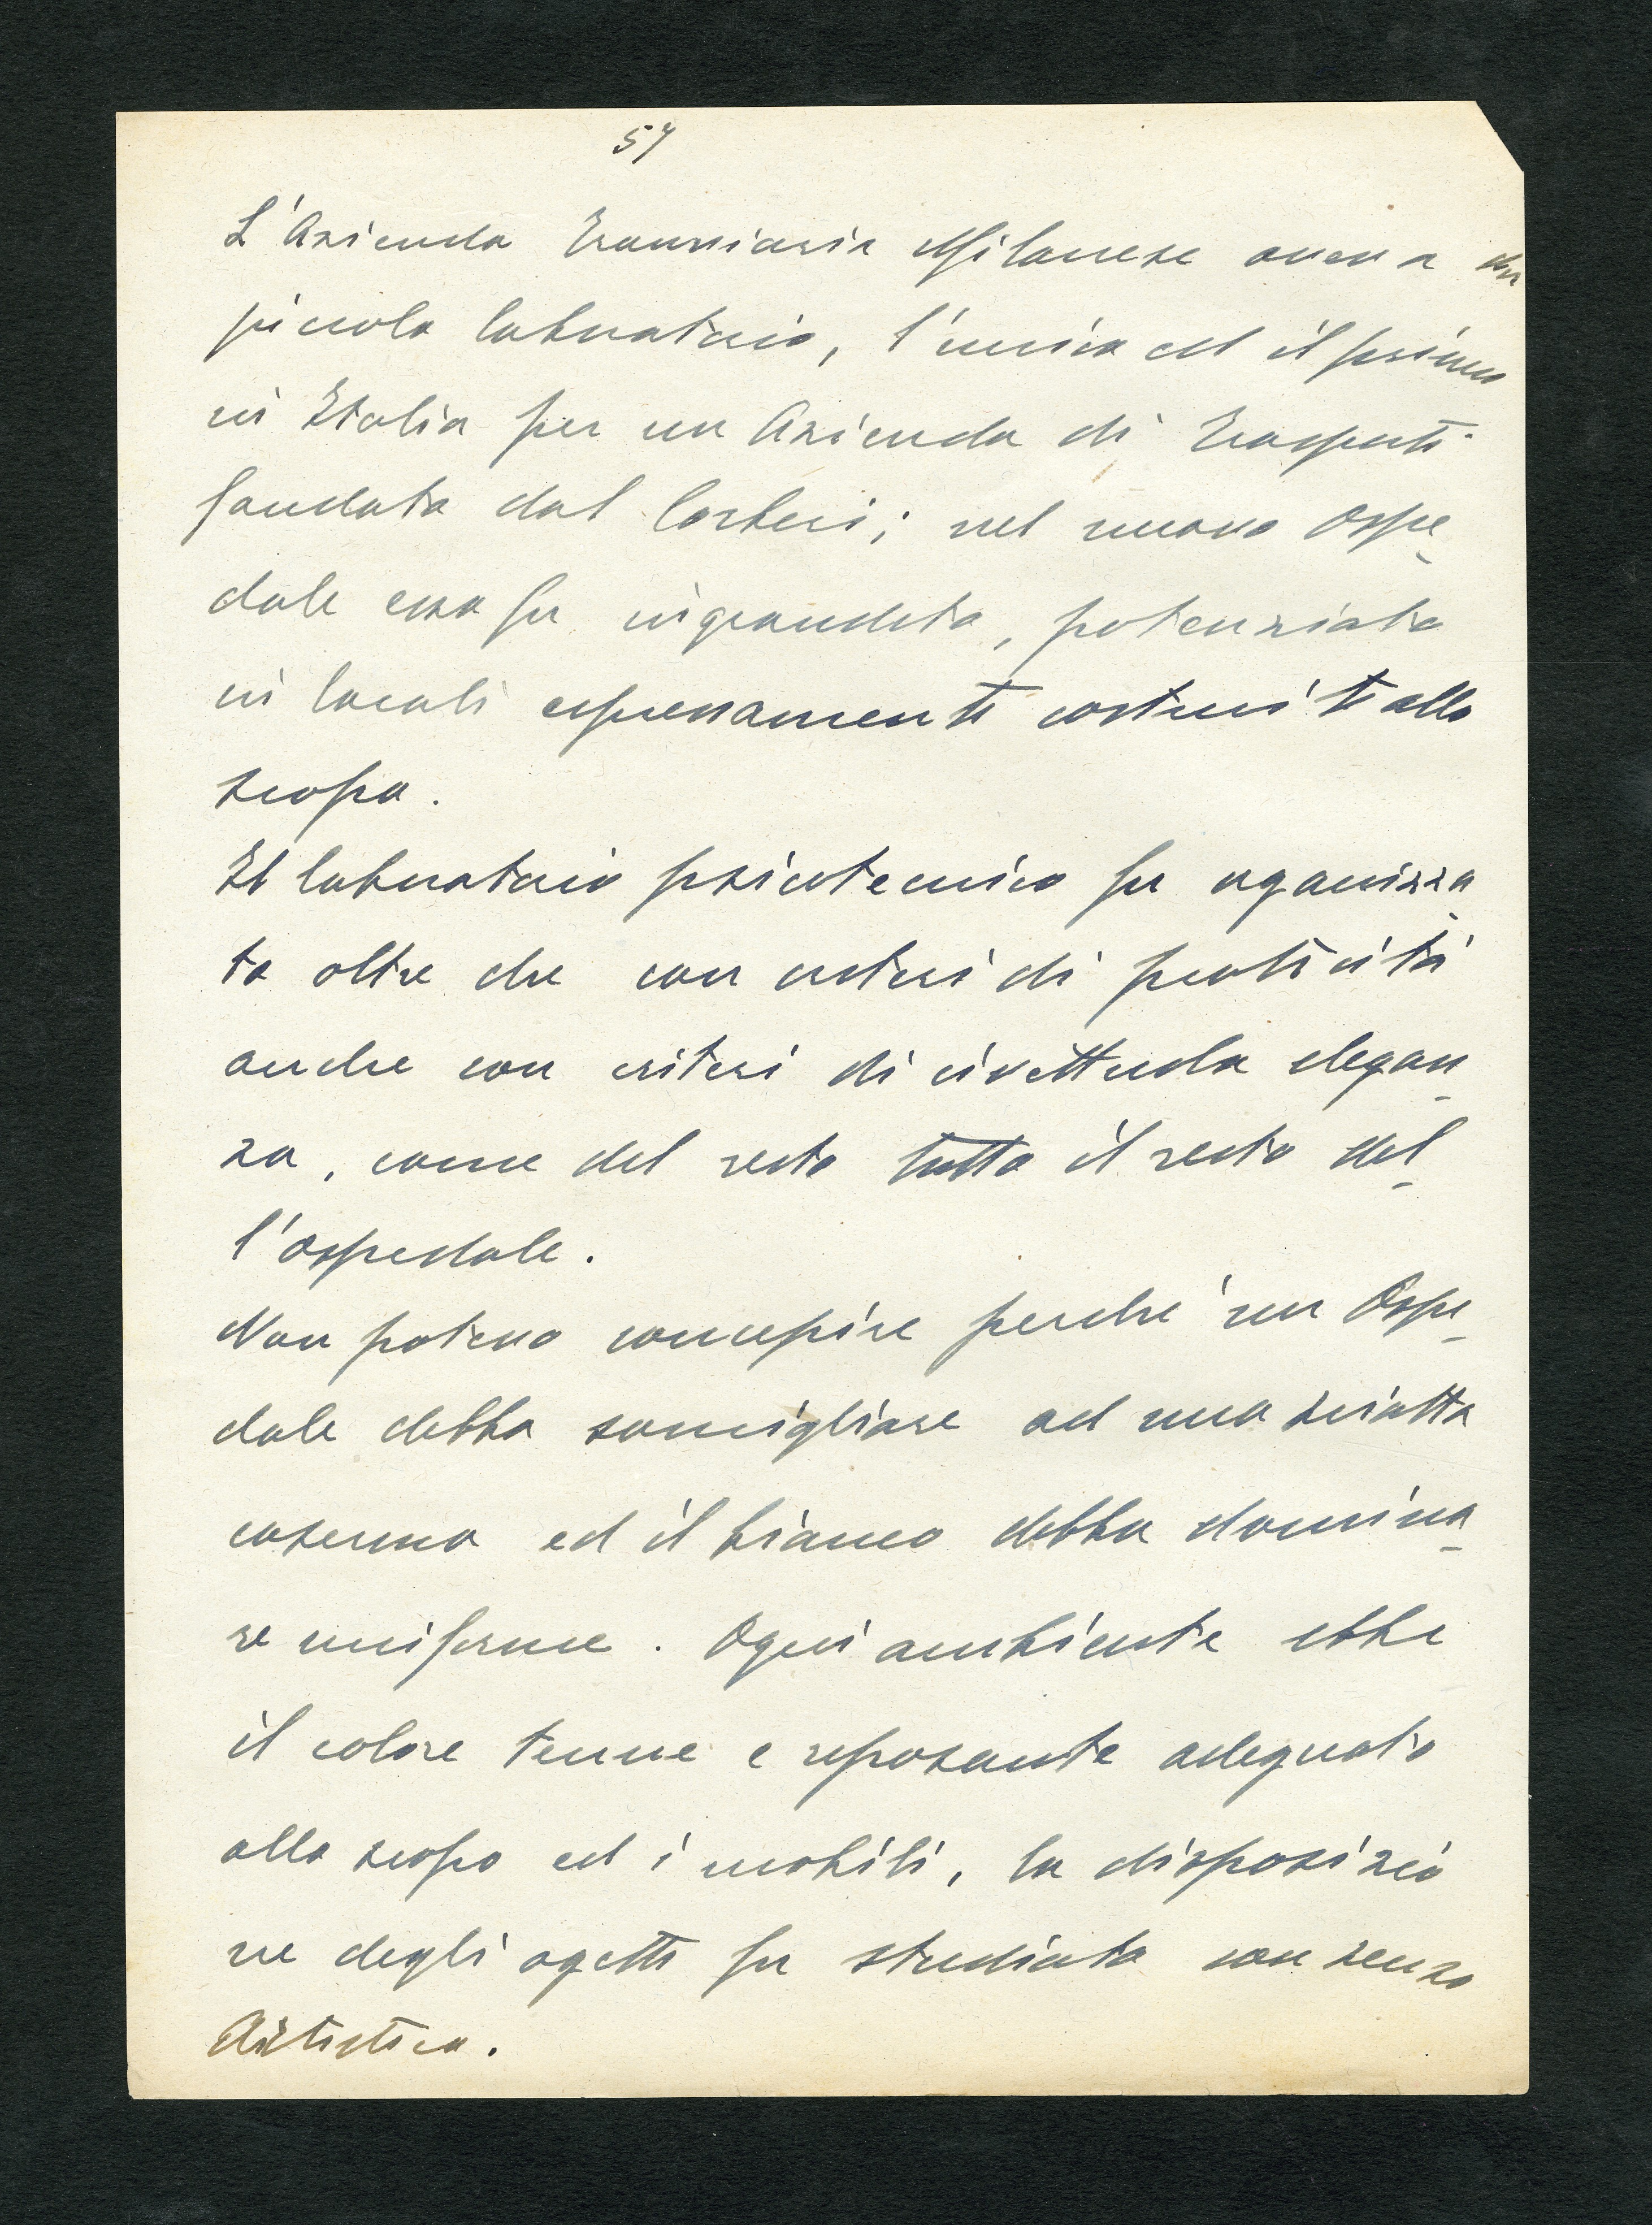 57
L'Azienda Tranviaria Milanese aveva un
piccolo laboratorio, l'unico ed il primo
in Italia per un Azienda di Trasporti
fondato dal Corberi; nel nuovo Ospe_
dale esso fu ingrandito, potenziato
in locali espressamente costruiti allo
scopo.
Il laboratorio psicotecnico fu organizza_
to oltre che con criteri di praticità
anche con criteri di civettuola elegan_
za, come del resto tutto il resto del_
l'ospedale.
Non potevo concepire perchè un Ospe_
dale debba somigliare ad una sciatta
caserma ed il bianco debba domina_
re uniforme. Ogni ambiente ebbe
il colore tenue e riposante adeguato
allo scopo ed i mobili, la disposizio
ne degli ogetti fu studiata con senso
Artistico.